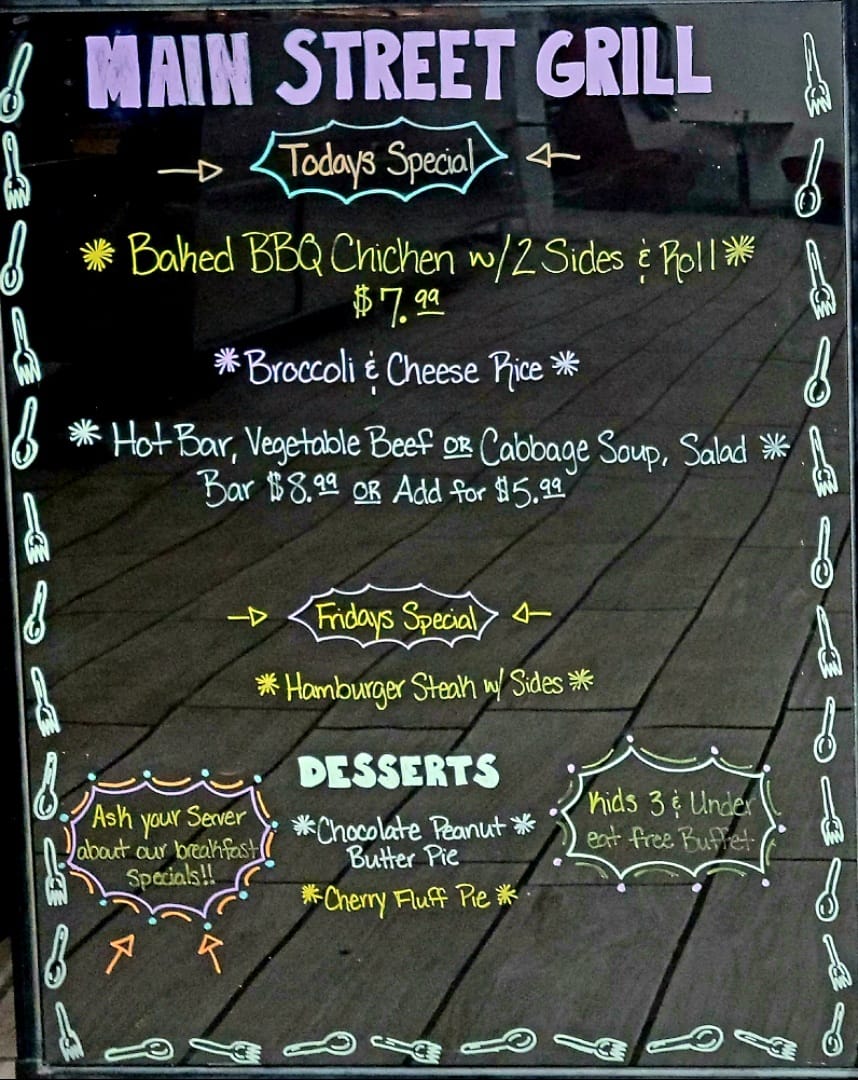 MAIN STREET GRILL
Todays Special
Baked BBQ Chicken w/2 Sides & Roll
$7.99
Broccoli & Cheese Rice
Hot Bar, Vegetable Beef OR Cabbage Soup, Salad
Bar $8.99 OR Add for $5.99
Fridays Special
Hamburger Steak w/ Sides
DESSERTS
Chocolate Peanut
Butter Pie
Cherry Fluff Pie
Ask your Server
about our breakfast
Specials!!
Kids 3 & Under
eat free Buffet